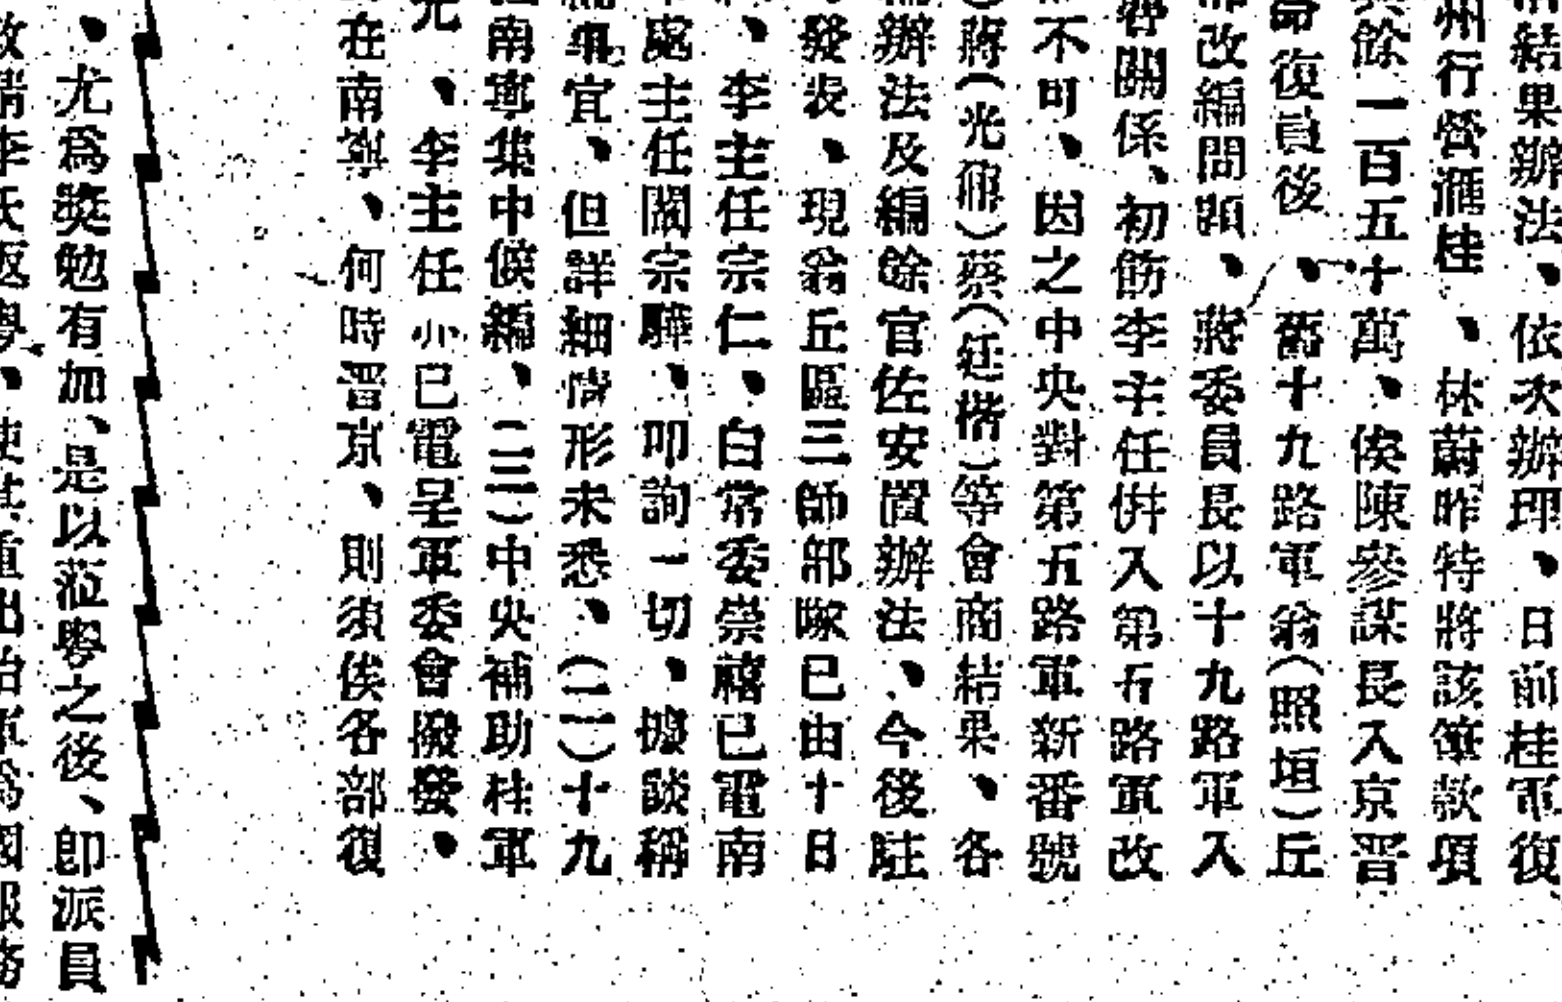 結果辦法、依次辦理、日前桂軍復
州行營滙桂、林蔚昨特將該筆款項
餘一百五十萬、俟陳參謀長入京晋
命復員後、舊十九路軍翁(照垣)丘
改編問題、蔣委員長以十九路軍入
關係、初飭李主任併入第五路軍改
不可、因之中央對第五路軍新番號
蔣(光鼐)蔡(廷楷)等會商結果、各
辦法及編餘官佐安置辦法、今後駐
發表、現翁丘區三師部隊已由十日
、李主任宗仁、白常委崇禧已電南
處主任闞宗驊、叩詢一切、據談稱
事宜、但詳細情形未悉、(二)十九
南寧集中候編、(三)中央補助桂軍
、李主任亦已電呈軍委會撥發、
在南寧、何時晋京、則須俟各部復
、尤爲獎勉有加、是以蒞粵之後、卽派員
李氏返粵、使其重出治軍爲國服務